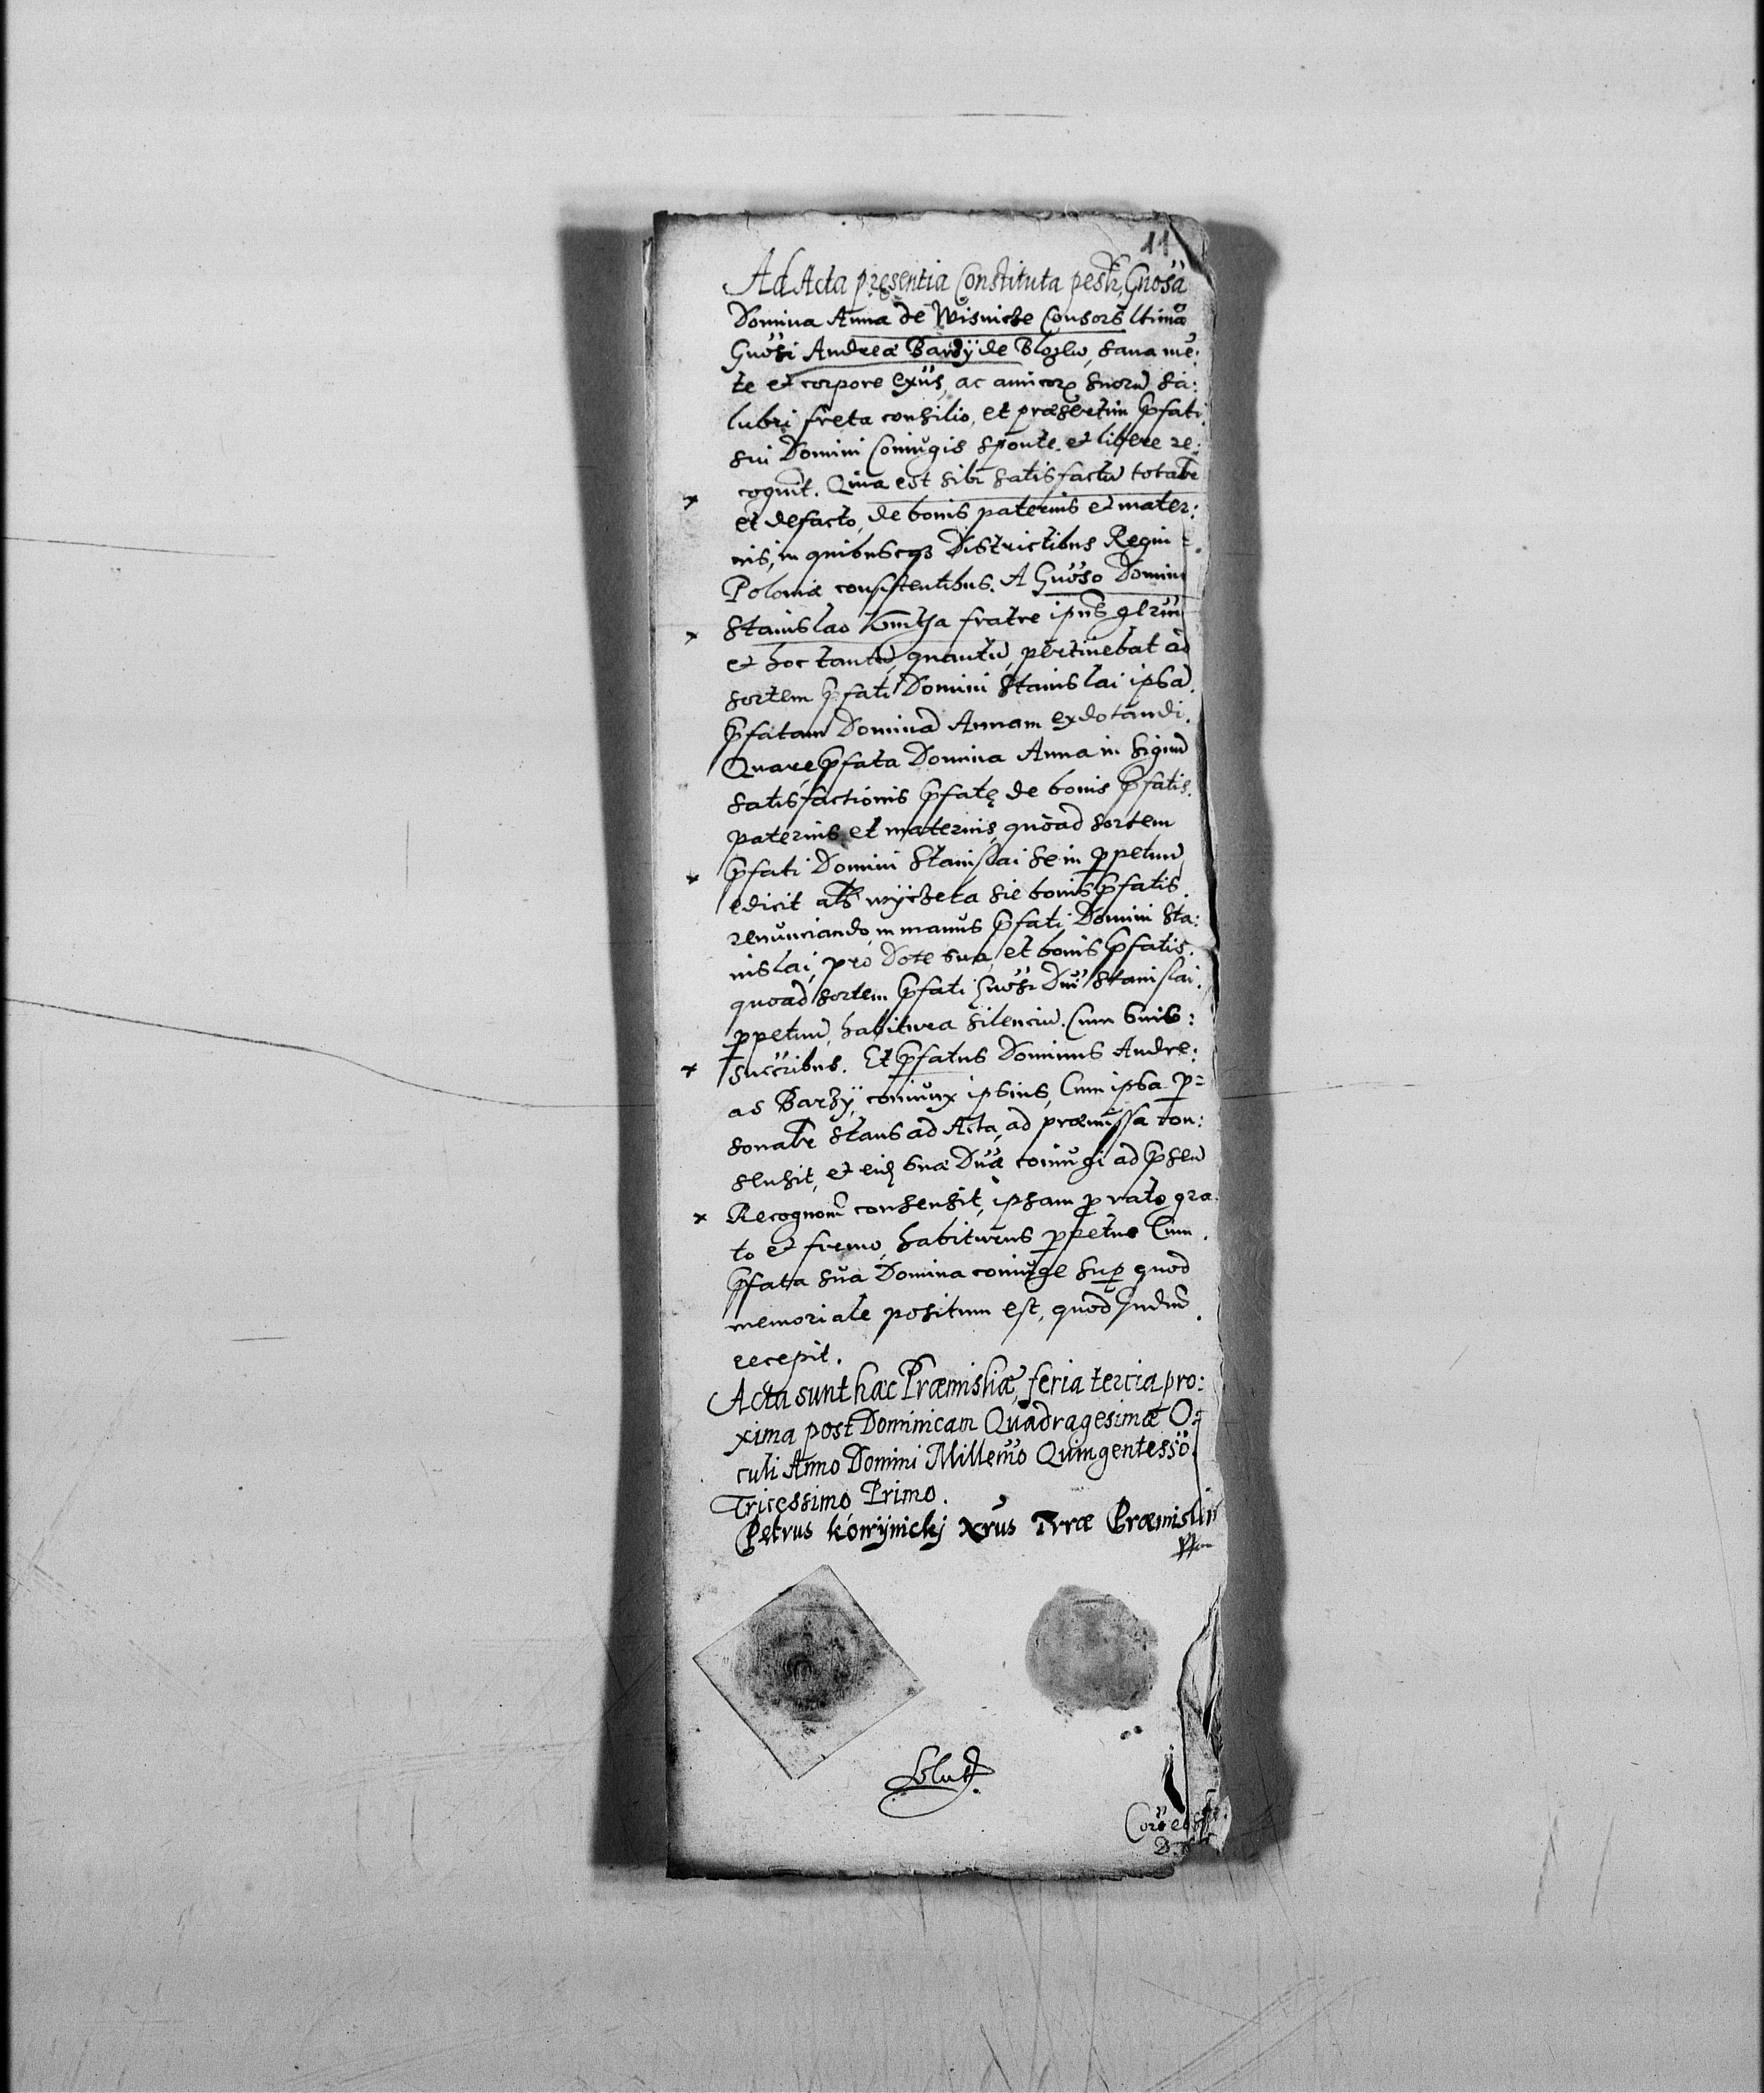 11
Ad Acta presentia Constituta pestr, Gnosa
Domina Anna de Wisnicze Consors ltima
Gnosi Andreæ Barzÿ de Blozew, sana mē:
te et corpore exñs, ac amicorꝝ suorū sa:
lubri freta consilio, et præsertim pfati
sui Domini Coniugis sponte et libere re:
cognit. Quia est sibi satisfactū totalr
et defacto, de bonis paternis et mater:
nis, in quibuscqꝫ Districtibus Regni
Poloniæ consistentibus. A Gnoso Domino
Stanislao Kmitha fratre ipius glrnū
et hoc tantū, quantū, pertinebat ad
sortem pfati Domini Stanislai ipsā
pfatam Dominā Annam exdotandi.
Quare pfata Domina Anna in signū
satisfactionis pfatę de bonis pfatis
paternis et maternis, quoad sortem
pfati Domini Stanislai se in ppetuū
edicit als wÿrzeka sie bonis pfatis
renunciando, in manus pfati Domini Sta:
nislai, pro Dote sua, et bonis pfatis
quoad sortem pfati Gnosi Dni Stanislai
ppetuū, habitura silenciū. Cum suis:
succribus. Et pfatus Dominus Andre:
as Barzÿ, coniunx ipsius, Cum ipsa p=
sonalr stans ad Acta, ad præmissa con:
sensit, et eidꝫ suæ Dnæ coniugi ad psen
Recognom consensit, ipsam p rato gra
to et firmo, habiturus ppetue Cum
pfata sua Domina coniuge Sup quod
memoriale positum est, quod Iudm
recepit.
Acta sunt hæc Præmisliæ, feria tercia pro:
xima post Dominicam Quadragesimæ O:
culi Anno Domini Millemo Quingentesso
Tricessimo Primo.
Petrus konÿnickj Xrus Trræ Præmislin